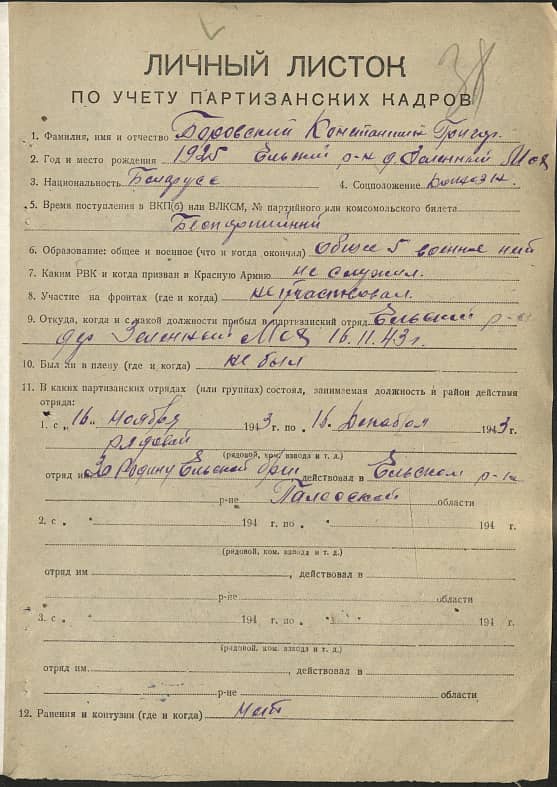 38
ЛИЧНЫЙ ЛИСТОК
ПО УЧЕТУ ПАРТИЗАНСКИХ КАДРОВ
1. Фамилия, имя и отчество Боровский Константин Григор.
2. Год и место рождения 1925 Ельский р-н д. Зеленный Мох
3. Национальность Беларусс 4. Соцположение
5. Время поступления в ВКП(б) или ВЛКСМ, № партийного или комсомольского билета
Беспартийный
6. Образование: общее и военное (что и когда окончил) Общее 5 военное нет
7. Каким РВК и когда призван в Красную Армию не служил.
8. Участие на фронтах (где и когда) не участвовал.
9. Откуда, когда и с какой должности прибыл в партизанский отряд Ельский р-н
дер Зеленный Мох 16.11.43 г.
10. Был ли в плену (где и когда) не был
11. В каких партизанских отрядах (или группах) состоял, занимаемая должность и район действия
отряда:
1. с „16" ноября 1943 г. по 16 декабря 1943 г.
рядовой
(рядовой, ком. взвода и т. д.)
отряд им За Родину Ельской бриг действовал в Ельском р-н
р-не области
2. с „ 194 г. по „ 194 г.
(рядовой, ком. взвода и т. д.)
отряд им , действовал в
р-не области
3. с „ 194 г. по „ 194 г.
(рядовой, ком. взвода и т. д.)
отряд им. , действовал в
р-не области
12. Ранения и контузии (где и когда) нет